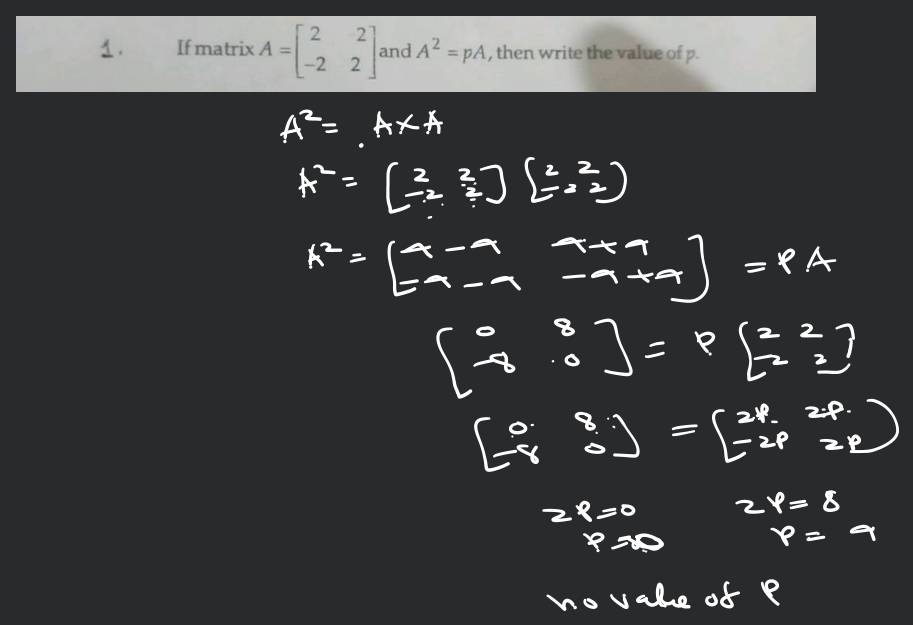 1. If matrix A = [2 -2] and A² = pA, then write the value of p.
[-2 2]
A² = A×A
A² = [2 2] [2 2]
[-2 2] [-2 2]
A² = [4-4 4+4] = PA
[-4-4 -4+4]
[0 8] = P [2 2]
[-8 0] [-2 2]
[0 8] = [2P 2P]
[-8 0] [-2P 2P]
2P=0 2P=8
P=0 P=4
no value of P